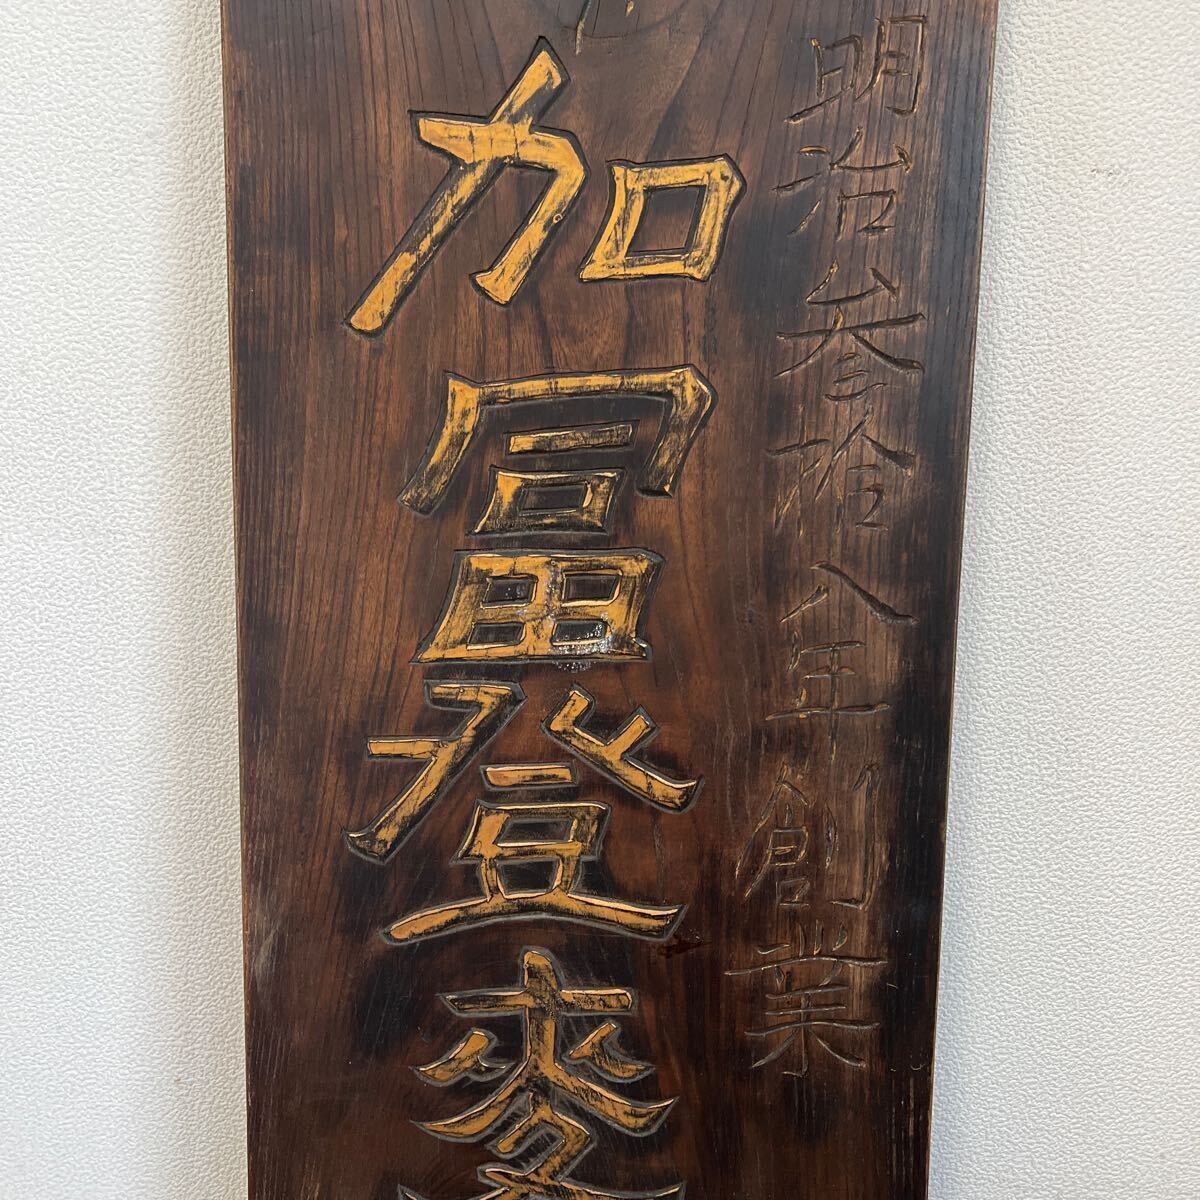 明治参拾八年創業
加冨登麥